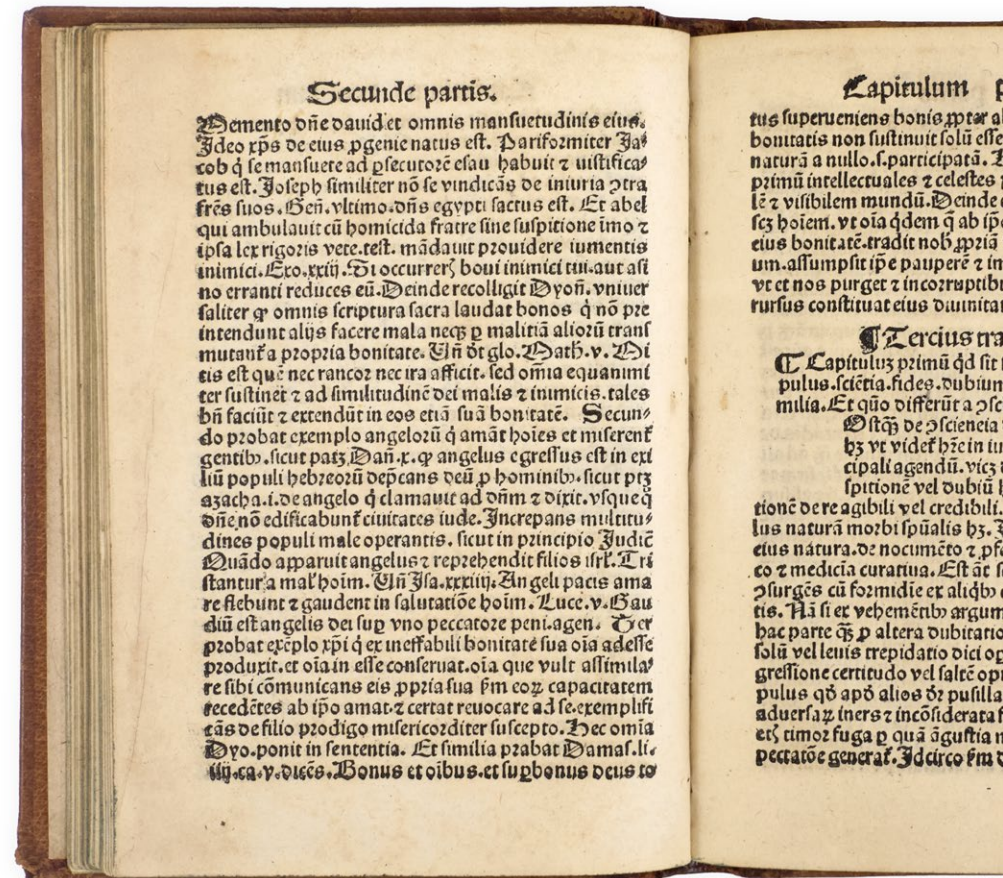 Secunde partis.
Memento dñe dauid et omnis mansuetudinis eius.
Ideo xp̄s de eius ꝓgenie natus est. Pariformiter Ja⸗
cob q̇ se mansuete ad ꝑsecutorē esau habuit ⁊ iustifica⸗
tus est. Joseph similiter nõ se vindicãs de iniuria ↄtra
frēs suos. Geñ. vltimo. dñs egypti factus est. Et abel
qui ambulauit cũ homicida fratre sine suspitione imo ⁊
ipsa lex rigoris vete. test. mãdauit prouidere iumentis
inimici. Exo. xxiij. Si occurrerꝫ boui inimici tui. aut asi
no erranti reduces eũ. Deinde recolligit Dyoñ. vniuer
saliter ꝙ omnis scriptura sacra laudat bonos q̇ nõ pre
intendunt alijs facere mala necꝫ ꝑ malitiã aliorũ trans
mutant̃ a propria bonitate. Uñ dt̄ glo. Math. v. Mi
tis est quē nec rancor nec ira afficit. sed om̃ia equanimi
ter sustinet ⁊ ad similitudinē dei malis ⁊ inimicis. tales
bñ faciũt ⁊ extendũt in eos etiã suã bonitatē. Secun⸗
do probat exemplo angelorũ q̇ amãt hoīes et miserent̃
gentibꝫ. sicut patꝫ Dañ. x. ꝙ angelus egressus est in exi
liũ populi hebreorũ dep̄cans deũ ꝓ hominibꝫ. sicut ptꝫ
azacha. i. de angelo q̇ clamauit ad dñm ⁊ dixit. vsqueq̇
dñe nõ edificabunt̃ ciuitates iude. Increpans multitu⸗
dines populi male operantis. sicut in principio Judic̄
Quãdo apparuit angelus ⁊ reprehendit filios isrł. Tri
stantur a mał hoīm. Uñ Isa. xxxiiij. Angeli pacis ama
re flebunt ⁊ gaudent in salutatiõe hoīm. Luce. v. Gau
diũ est angelis dei suꝑ vno peccatore peni. agen. Ter
probat exēplo xp̄i q̇ ex ineffabili bonitate sua oīa adesse
produxit. et oīa in esse conseruat. oīa que vult assimila⸗
re sibi cõmunicans eis ꝓpria sua ẜm eoꝝ capacitatem
recedētes ab ip̄o amat. ⁊ certat reuocare ad se. exemplifi
cãs de filio prodigo misericorditer suscepto. Hec om̃ia
Dyo. ponit in sententia. Et similia prabat Damas. li.
iiij. ca. v. dicēs. Bonus et oībus. et suꝑbonus deus to
Capitulum p
tus superueniens bonis ꝓptar a
bonitatis non sustinuit solũ esse
naturã a nullo. s. participatã.
primũ intellectuales ⁊ celestes
lē ⁊ visibilem mundũ. Deinde
scꝫ hoīem. vt oīa q̇dem q̄ ab ip̄
eius bonitatē. tradit nob̄ ꝓpriã
um. assumpsit ip̄e pauperē ⁊ in
vt et nos purget ⁊ incorruptib
rursus constituat eius diuinita
¶ Tercius tra
¶ Capituluꝫ primũ q̇d sit
pulus. sciētia. fides. dubium
milia. Et quõ differũt a ↄsc
Ostqꝫ de ↄscieneia
hꝫ vt videt̃ hr̄e in iu
cipali agendũ. vicꝫ
spitionē vel dubiũ
tionē de re agibili vel credibili.
lus naturã morbi sp̄ualis hꝫ.
eius natura. de nocumēto ⁊ ꝓfe
co ⁊ medicīa curatiua. Est āt s
ↄsurgēs cũ formidīe ex aliq̇bꝫ
tis. Nã si ex vehemētibꝫ argum
hac parte q̄ꝫ ꝓ altera dubitatio
solũ vel leuis trepidatio dici op
gressione certitudo vel saltē opi
pulus qd̄ apd̄ alios dr̄ pusilla
aduersaꝝ iners ⁊ incõsiderata f
etꝫ timor fuga ꝑ quã ãgustia m
pectatõe generat̃. Idcirco ẜm